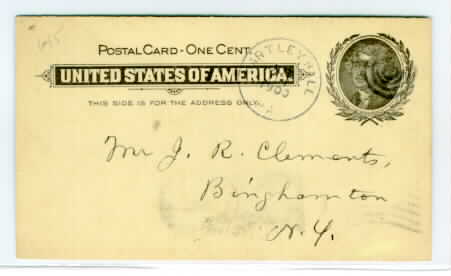 POSTAL CARD - ONE CENT.
UNITED STATES OF AMERICA.
THIS SIDE IS FOR THE ADDRESS ONLY.
HALL
Mr J. R. Clements,
Binghamton
N.Y.